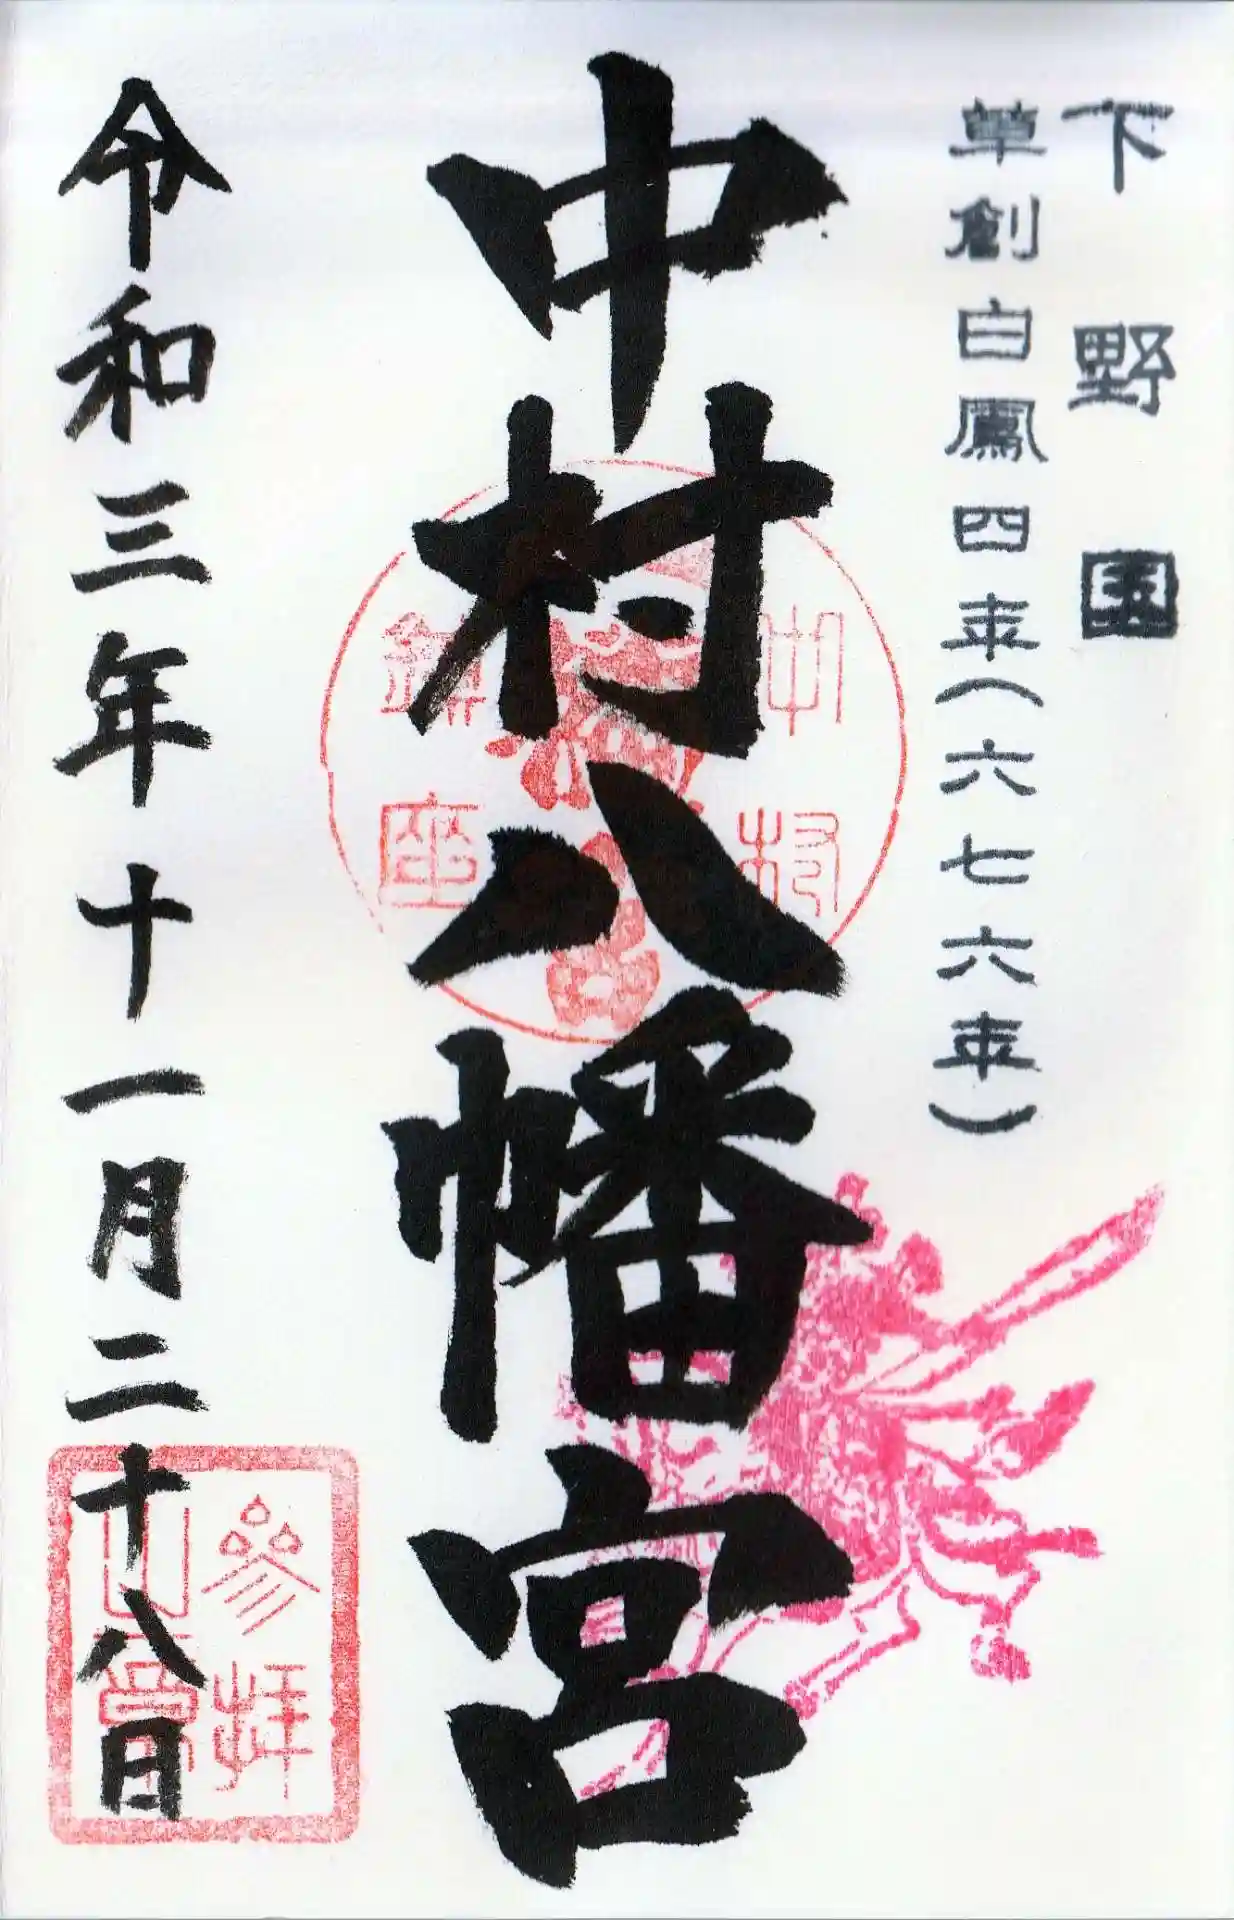 下野国
草創白鳳四年(六七六年)
中村八幡宮
中村
鎮座
令和三年十一月二十八日
参拝